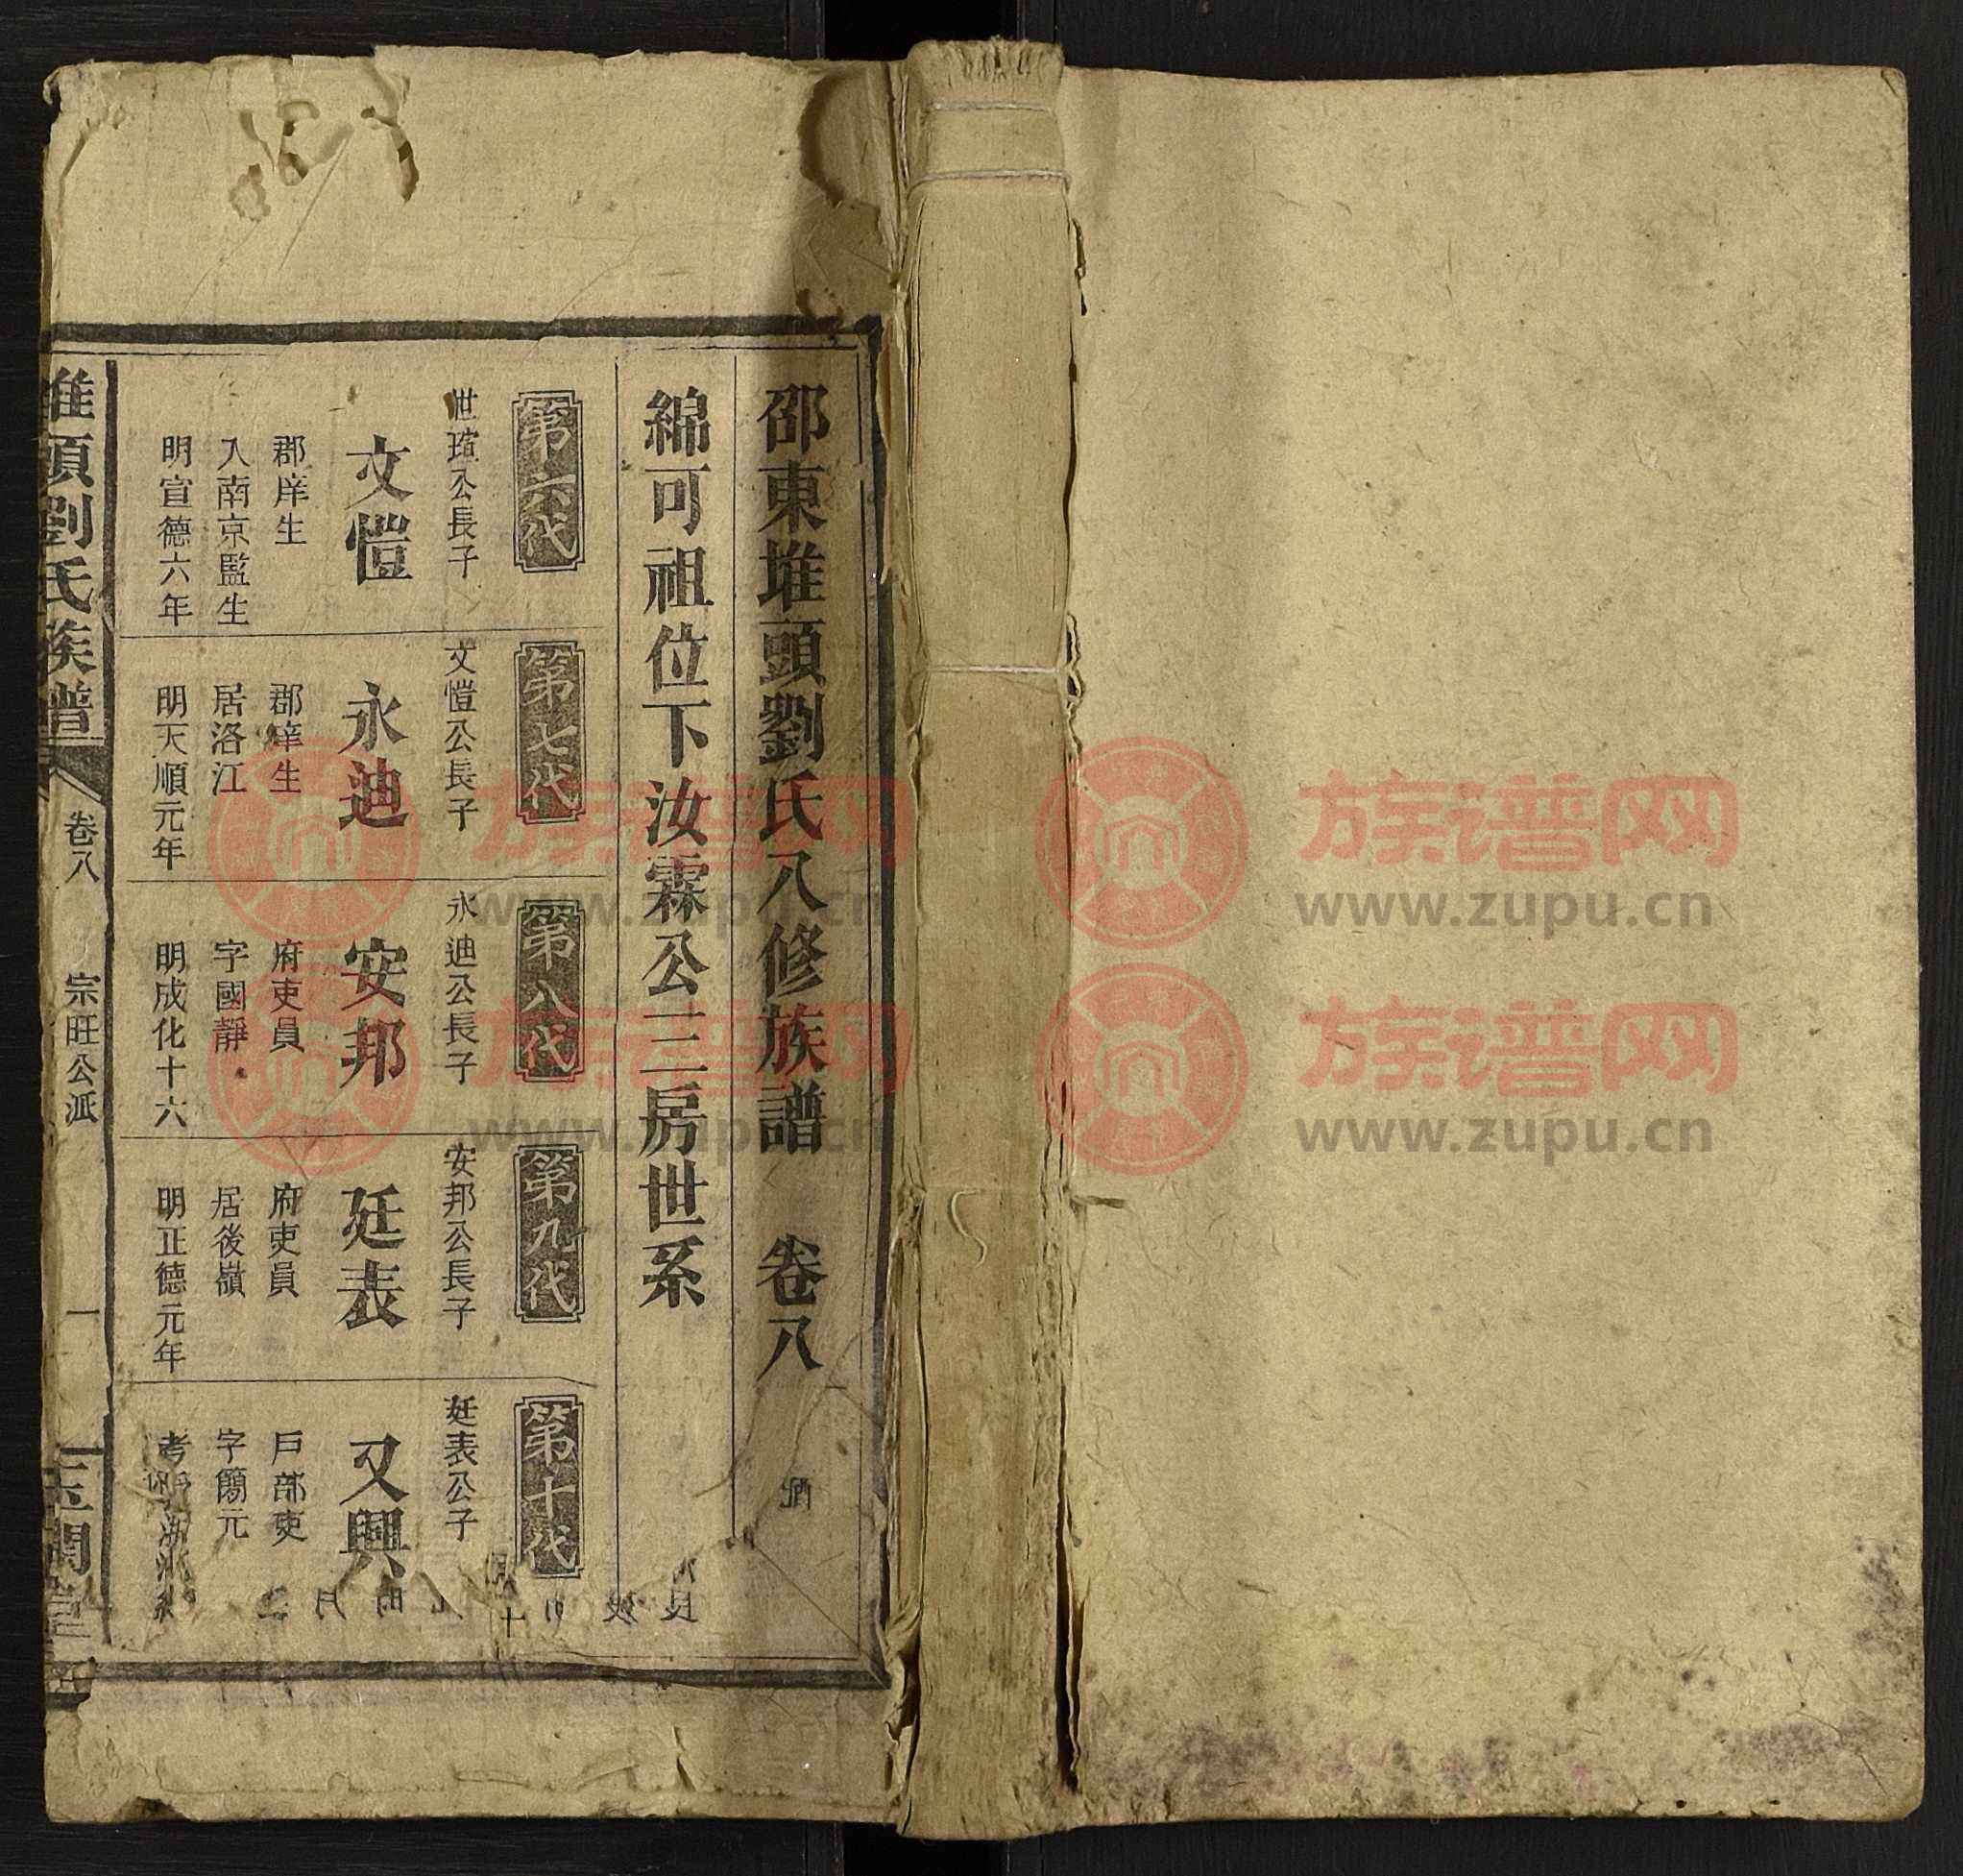 邵東堆頭劉氏八修族譜 卷八
綿可祖位下汝霖公三房世系
第六代
世瑄公長子
文愷
郡庠生
入南京監生
明宣德六年
第七代
文愷公長子
永迪
郡庠生
居洛江
明天順元年
第八代
永迪公長子
安邦
府吏員
字國靜
明成化十六
第九代
安邦公長子
廷表
府吏員
居後嶺
明正德元年
第十代
廷表公子
又興
戶部吏
字簡元
考
堆頭劉氏族譜
卷八
宗旺公派
一
族谱网
www.zupu.cn
族谱网
www.zupu.cn
族谱网
www.zupu.cn
族谱网
www.zupu.cn